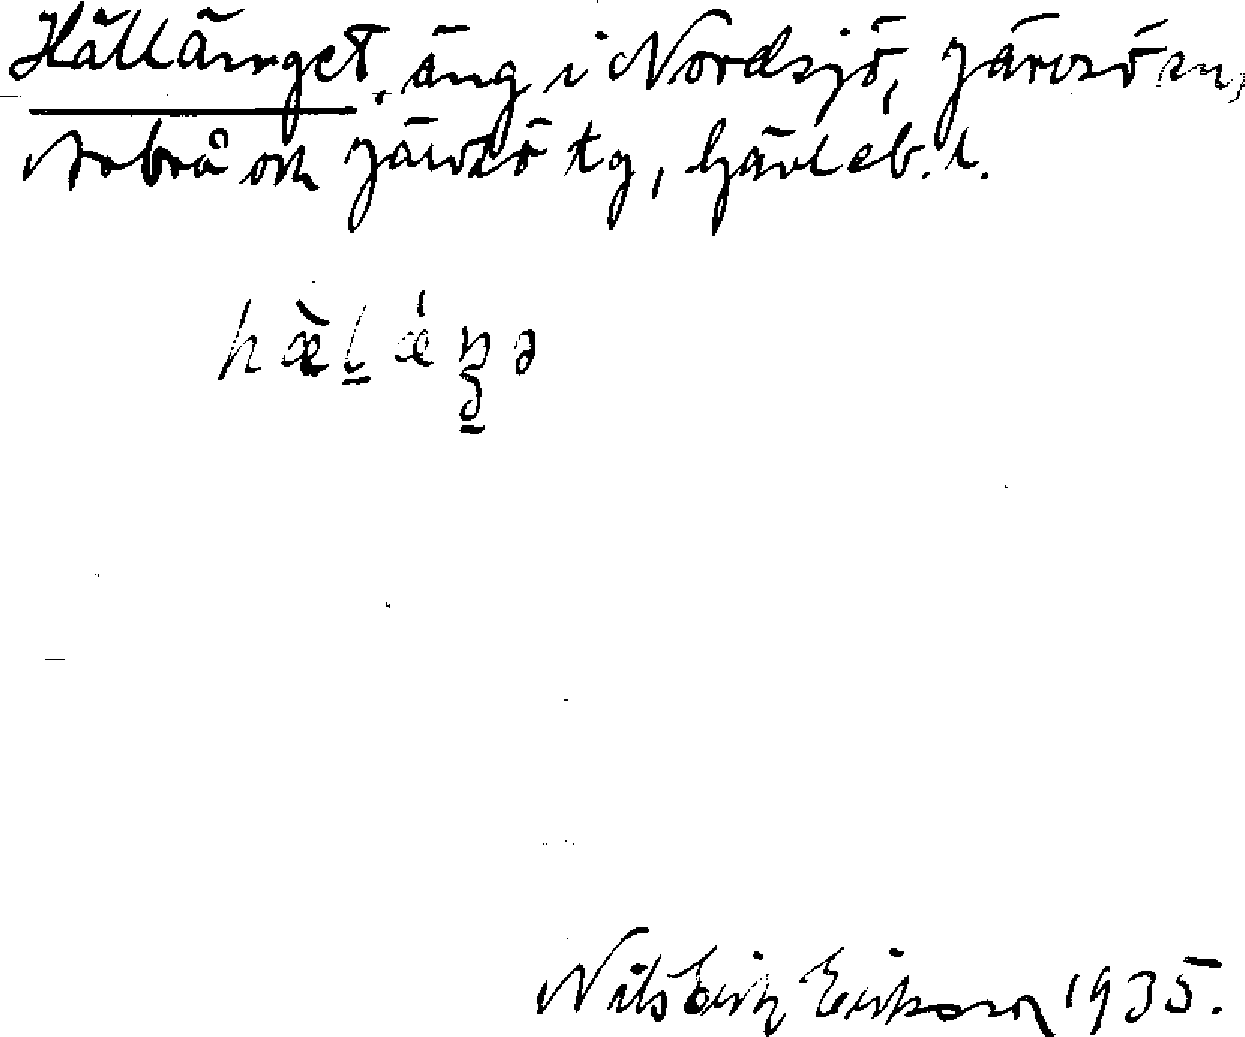 Hällänget, äng i Nordsjö, Järvsö sn,
Arbrå och Järvsö tg, Gävleb. l.
hæ̀l̠ǽŋə
Nils Erik Eriksson 1935.